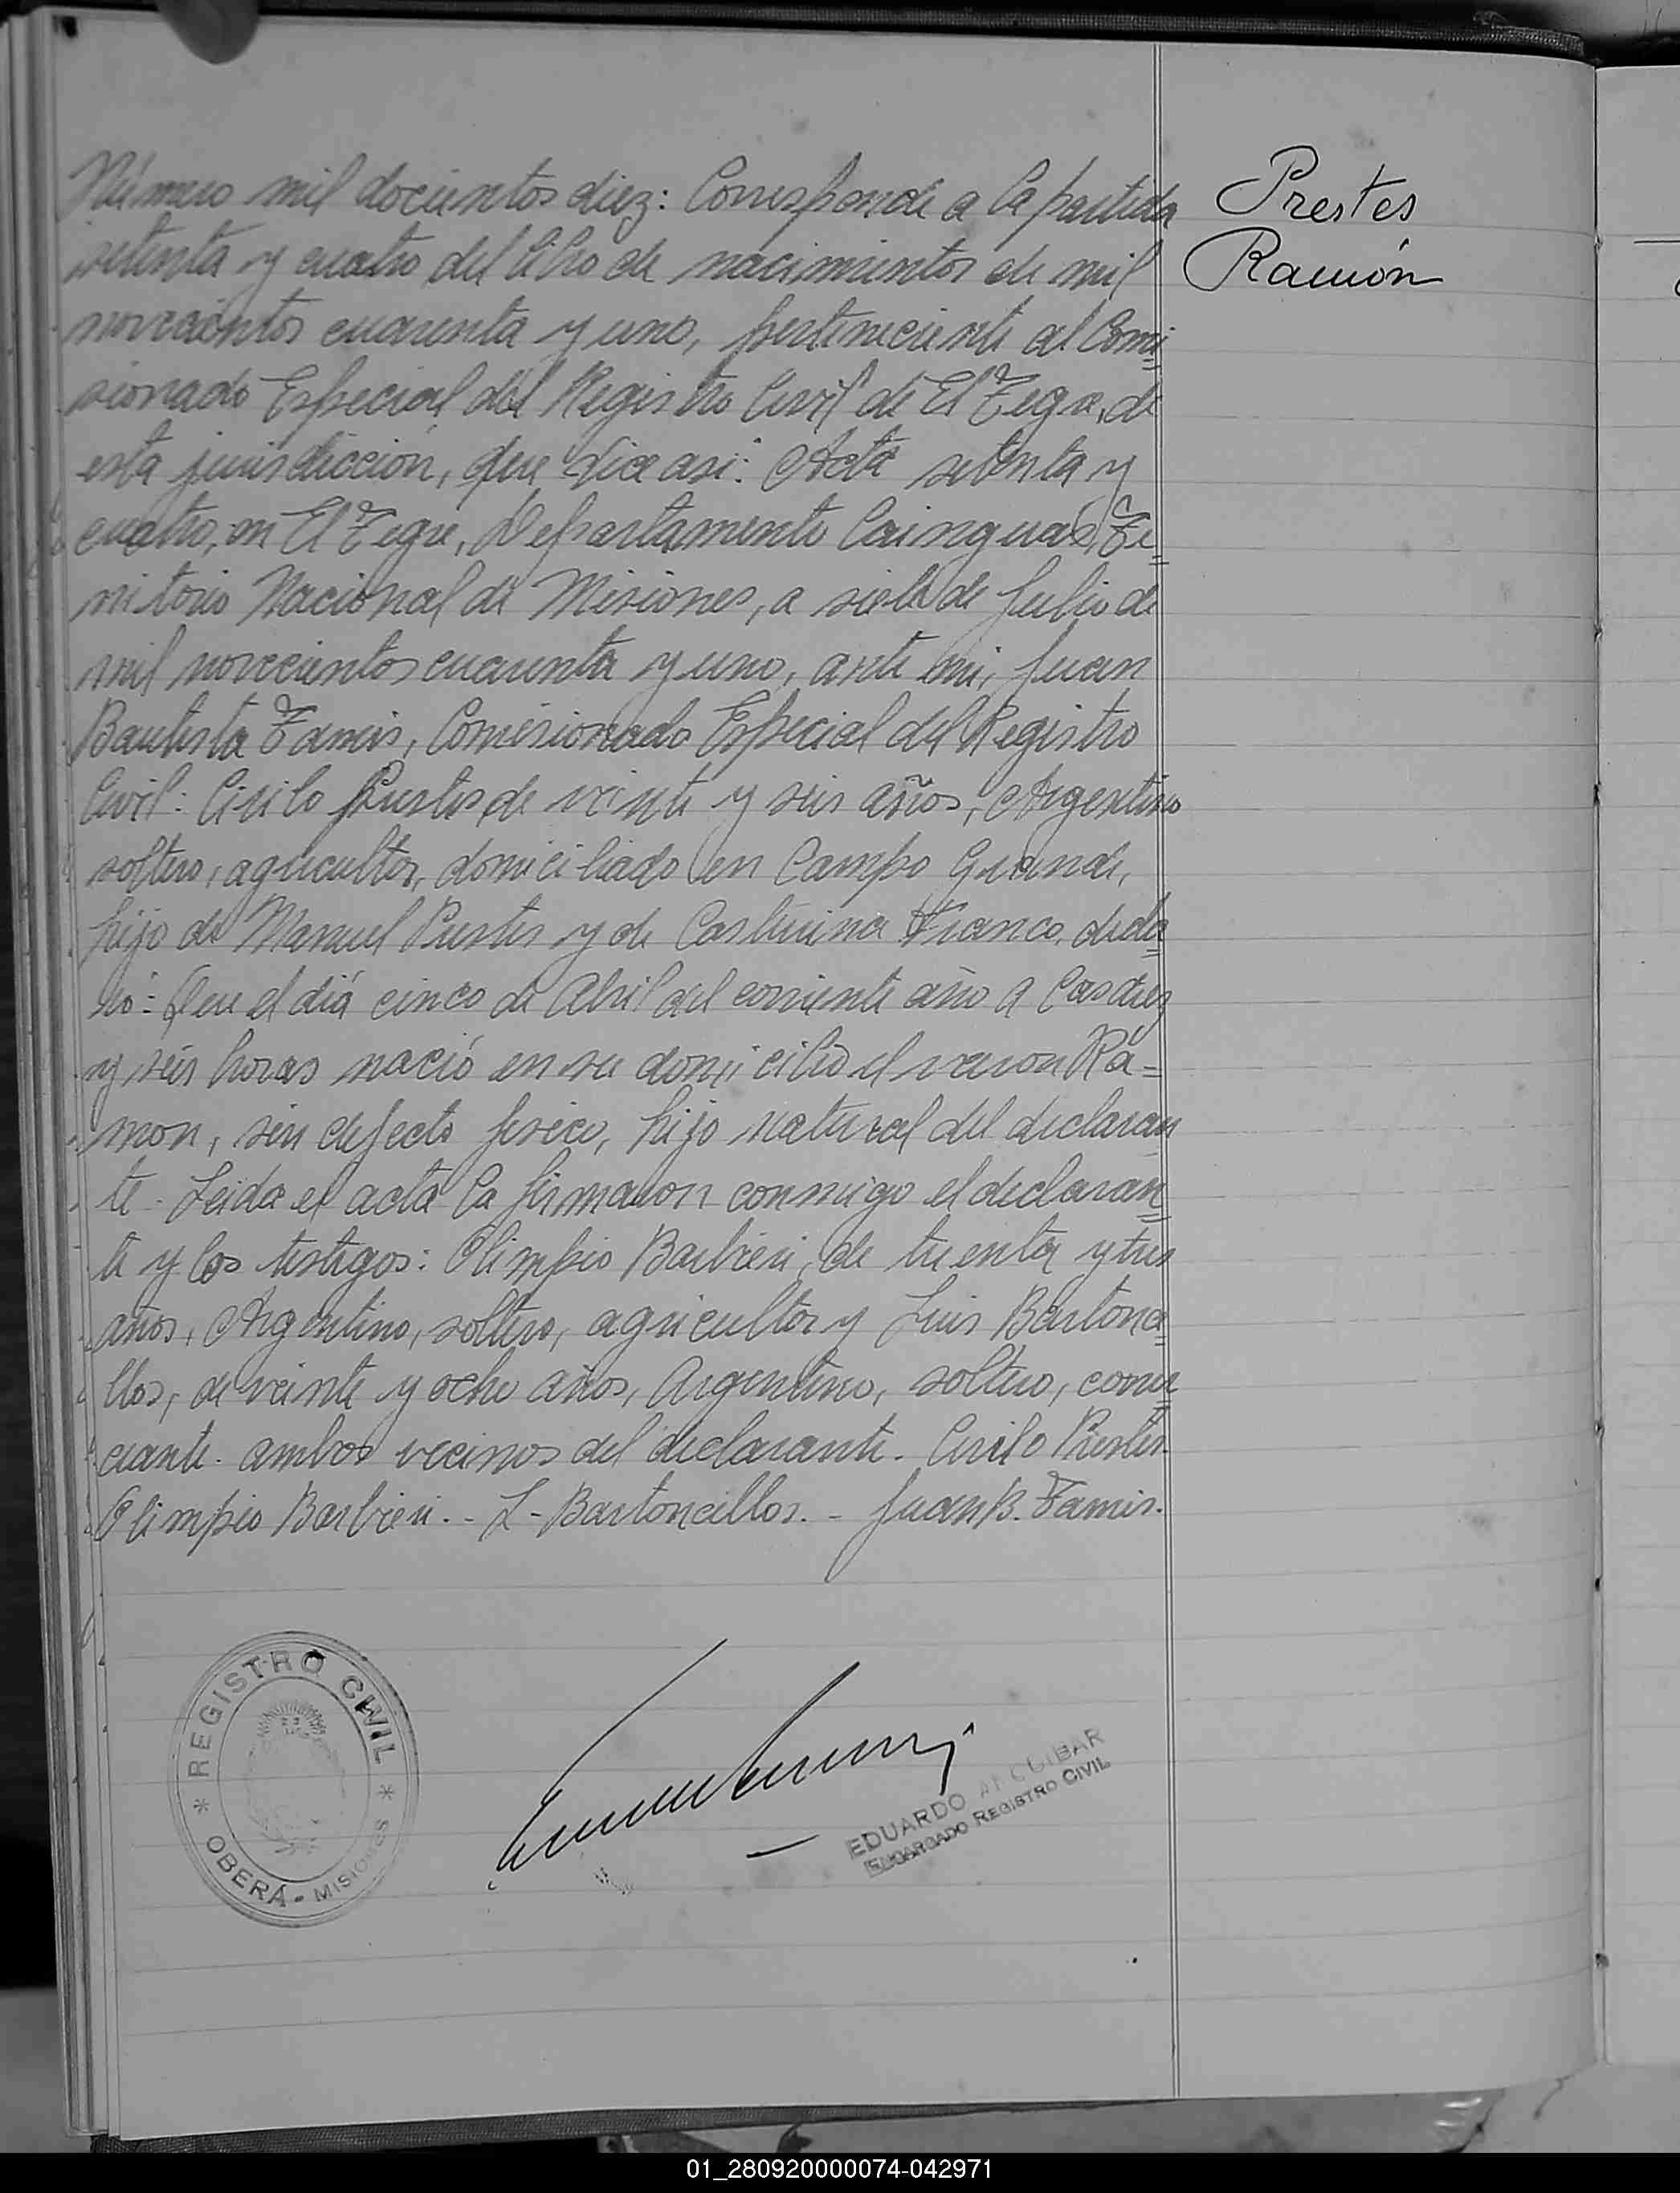 Número mil docientos diez: Corresponde a la partida
setenta y cuatro del libro de nacimientos de mil
novecientos cuarenta y uno, perteneciente al Comi=
sionado Especial del Registro Civil de El Tigre, de
esta jurisdicción, que dice asi: Acta setenta y
cuatro, en El Tigre, Departamento Cainguas, Te=
rritorio Nacional de Misiones, a siete de Julio de
mil novecientos cuarenta y uno, ante mi, Juan
Bautista Famis, Comisionado Especial del Registro
Civil: Cirilo Prestes de veinte y seis años, Argentino
soltero, agricultor, domiciliado en Campo Grande,
hijo de Manuel Prestes y de Franco, decla=
ró: Que el diá cinco de Abril del corriente año a las diez
y seis horas nació en su domicilio el varon Ra=
mon, sin defecto fisico, hijo natural del declaran
te - Leida el acta la firmaron conmigo el declaran=
te y los testigos: Olimpio Barbieri, de treinta y tres
años, Argentino, soltero, agricultor y Luis Bartonci=
llos, de veinte y ocho años, Argentino, soltero, comer
ciante. ambos vecinos del declarante. Cirilo Prestes.
Olimpio Barbieri. - L - Bartoncillos. - Juan B. Famis.
Prestes
Ramón
REGISTRO CIVIL
* OBERÁ - MISIONES *
EDUARDO
ENCARGADO REGISTRO CIVIL
01_280920000074-042971